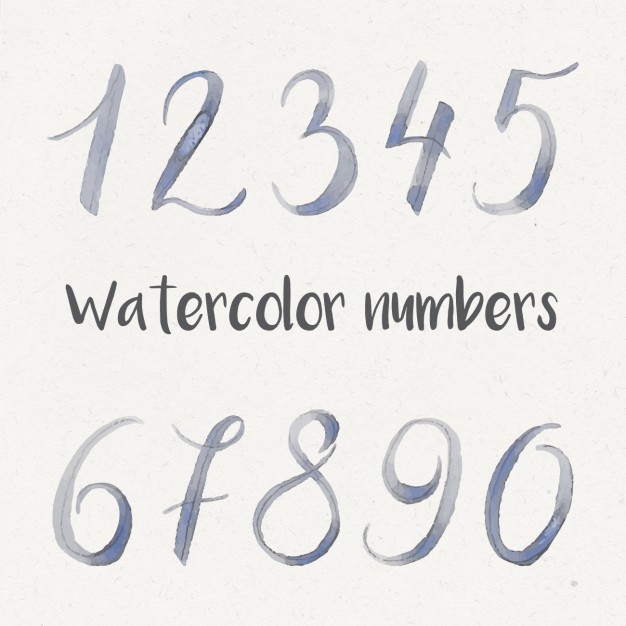 12345
Watercolor numbers
67890